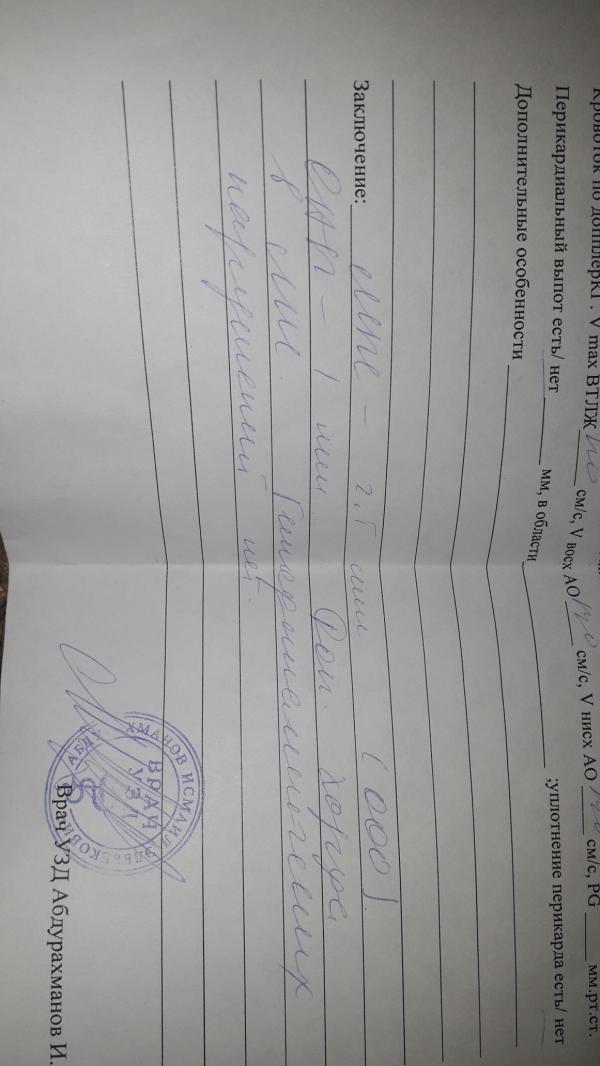 Кровоток по допплерКГ. V max ВТЛЖ см/с, V восх АО см/с, V нисх АО см/с, PG мм.рт.ст.
Перикардиальный выпот есть/ нет мм, в области ;уплотнение перикарда есть/ нет
Дополнительные особенности
Заключение: ММПП – 2,5 мм (ООО).
1 мм Доп. хорда
в ЛЖ Гемодинамических
нарушений нет.
ВРАЧ
УЗД
Врач УЗД Абдурахманов И.